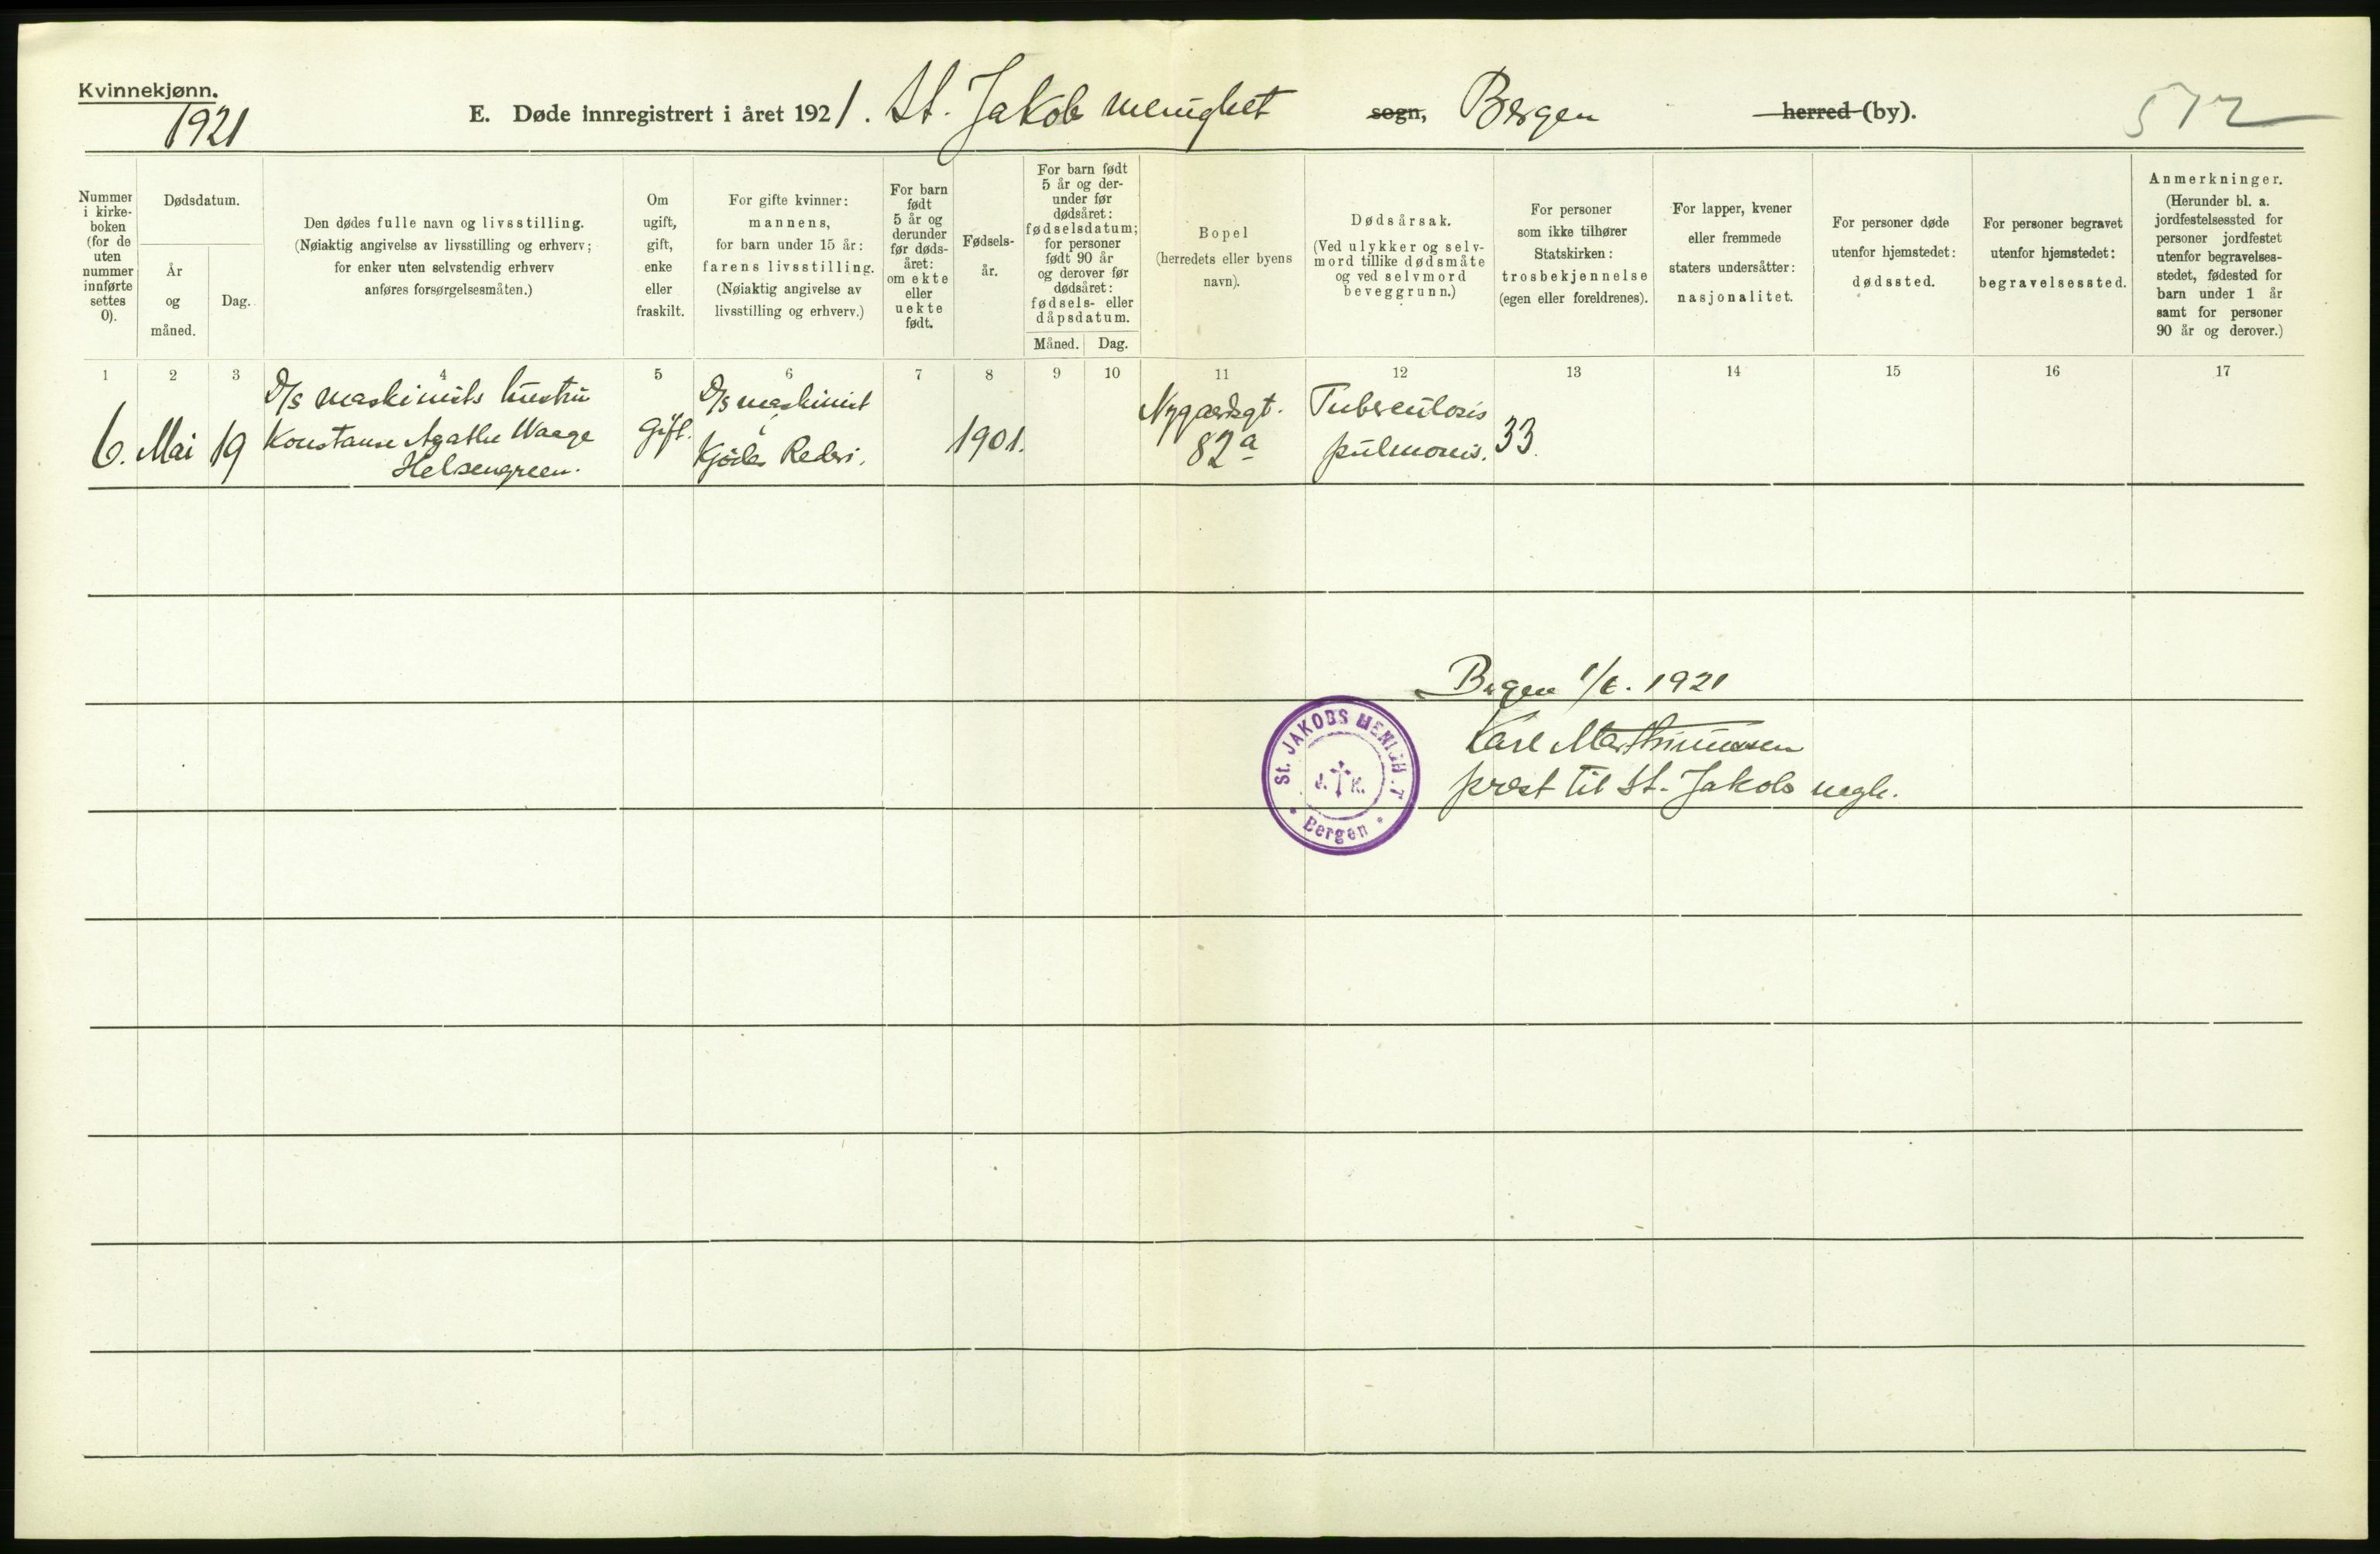 Kvinnekjønn.
1921
E. Døde innregistrert i året 1921. St. Jakob menighet sogn, Bergen herred (by).
572
Nummer i kirke-boken (for de uten nummer innførte settes 0).
Dødsdatum.
År og måned.
Dag.
Den dødes fulle navn og livsstilling.
(Nøiaktig angivelse av livsstilling og erhverv;
for enker uten selvstendig erhverv
anføres forsørgelsesmåten.)
Om
ugift,
gift,
enke
eller
fraskilt.
For gifte kvinner:
mannens,
for barn under 15 år:
farens livsstilling.
(Nøiaktig angivelse av
livsstilling og erhverv.)
For barn
født
5 år og
derunder
før døds-
året:
om ekte
eller
uekte
født.
Fødsels-
år.
For barn født
5 år og der-
under før
dødsåret:
fødselsdatum;
for personer
født 90 år
og derover før
dødsåret:
fødsels- eller
dåpsdatum.
Måned. Dag.
Bopel
(herredets eller byens
navn).
Dødsårsak.
(Ved ulykker og selv-
mord tillike dødsmåte
og ved selvmord
beveggrunn.)
For personer
som ikke tilhører
Statskirken:
trosbekjennelse
(egen eller foreldrenes).
For lapper, kvener
eller fremmede
staters undersåtter:
nasjonalitet.
For personer døde
utenfor hjemstedet:
dødssted.
For personer begravet
utenfor hjemstedet:
begravelsessted.
Anmerkninger.
(Herunder bl. a.
jordfestelsessted for
personer jordfestet
utenfor begravelses-
stedet, fødested for
barn under 1 år
samt for personer
90 år og derover.)
1 2 3 4 5 6 7 8 9 10 11 12 13 14 15 16 17
6. Mai 19
D/s maskinists hustru
Konstanse Agathe Waage
Helsengreen.
Gift.
D/s maskinist
i
Kjødes Rederi.
1901.
Nygaardsgt.
82a
Tuberculosis
pulmonis.
33.
Bergen 1/6. 1921
Karl Marthinussen
prest til St. Jakobs megh.
St. JAKOBS MENIGH.T
J. K.
Bergen